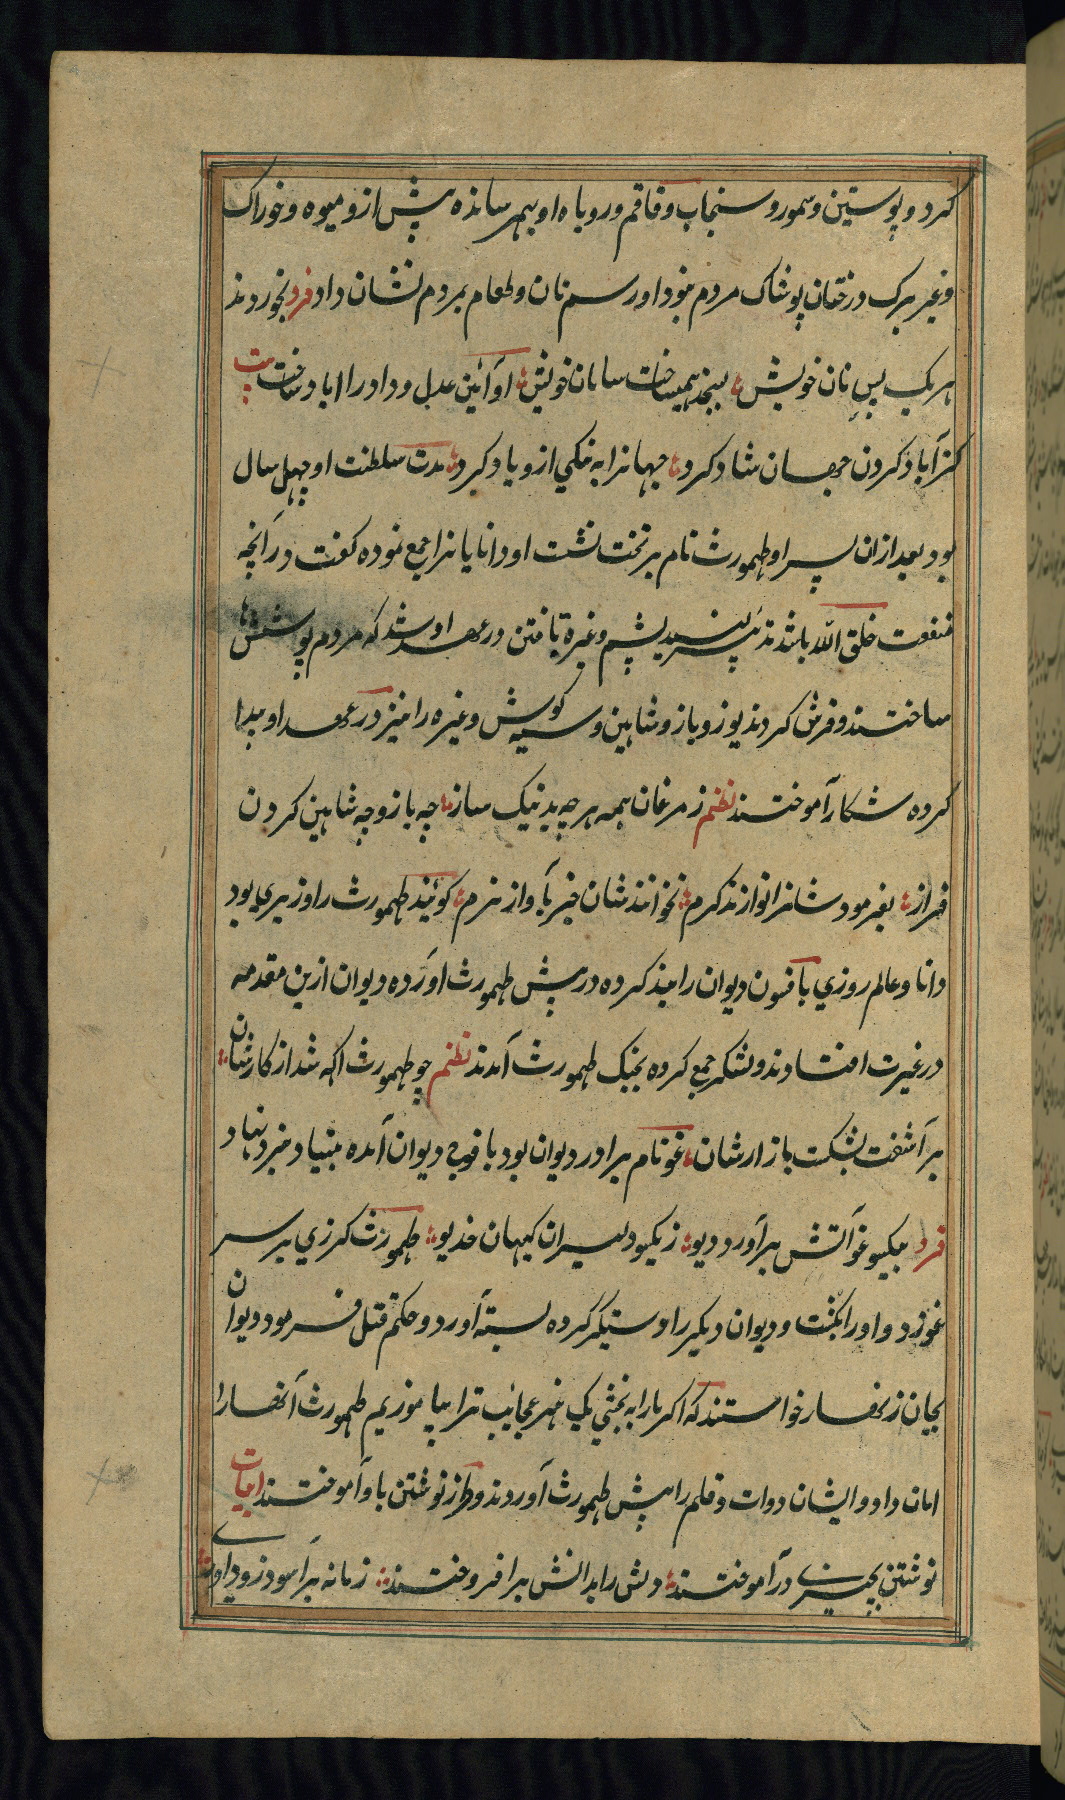 کرد و پوستین و سمور و سنجاب و قاقم و روباه او بهم رسانده پیش ازو میوه و خوراک
و غیر برک درختان پوشاک مردم نبود او رسم نان و طعام بمردم نشان داد فرد بخوردند
هر یک پس نان خویش بسنجد همیساخت سامان خویش او آئین عدل و داد را اباد ساخت بیت
کز آباد کردن جهان شاد کرد جهانرا به نیکی ازو یاد کرد مدت سلطنت او چهل سال
بود بعد ازان پسر او طهمورث نام بر تخت نشت او دانایانرا جمع نموده کفت در آنچه
منفعت خلق الله باشد پشم وغیره بافتن در عهد او شد که مردم پوششها
ساختند و فرش کردند یوز و باز و شاهین و سیه کوش و غیره را نیز در عهد او پیدا
کرده شکار آموختند نظم ز مرغان همه هر چه بد نیک ساز چه باز و چه شاهین کردن
فراز بفرمود شانرا نوازند کرم نخوانند شان جز بآواز نرم کویند طهمورث را وزیری بود
دانا و عالم روزی بافسون دیوان را بند کرده در پیش طهمورث اورده دیوان ازین مقدمه
در غیرت افتادند و لشکر جمع کرده بجنک طهمورث آمدند نظم چو طهمورث اکه شد از کارشان
بر آشفت بشکست بازارشان غو نام برادر دیوان بود با فوج دیوان آمده بنیاد نبرد نهاد
فرد بیکسو غو آتش برآورد دیو ز یکسو دلیران کیهان خدیو طهمورث کرزی بر سر
غو زد و او را بکشت و دیوان دیکر را دستکیر کرده بسته آورد و حکم قتل فرمود دیوان
بجان زنهار خواستند که اکر ما را به بخشی یک هنر عجائب ترا بیاموزیم طهمورث آنها را
امان داد و ایشان دوات و قلم را پیش طهمورث آوردند و طرز نوشتن باو آموختند ابیات
نوشتن بچیزی درآموختند دلش را بدانش برافروختند زمانه برآسود زو داوری